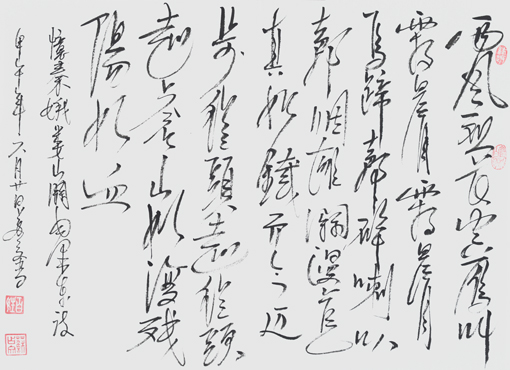 西风烈长空雁叫
霜晨月霜晨月
马蹄声碎喇叭
声咽雄関漫道
真如鐵而今迈
步從頭越從頭
越苍山如海残
陽如血
憶秦娥娄山関
甲午年六月廿日